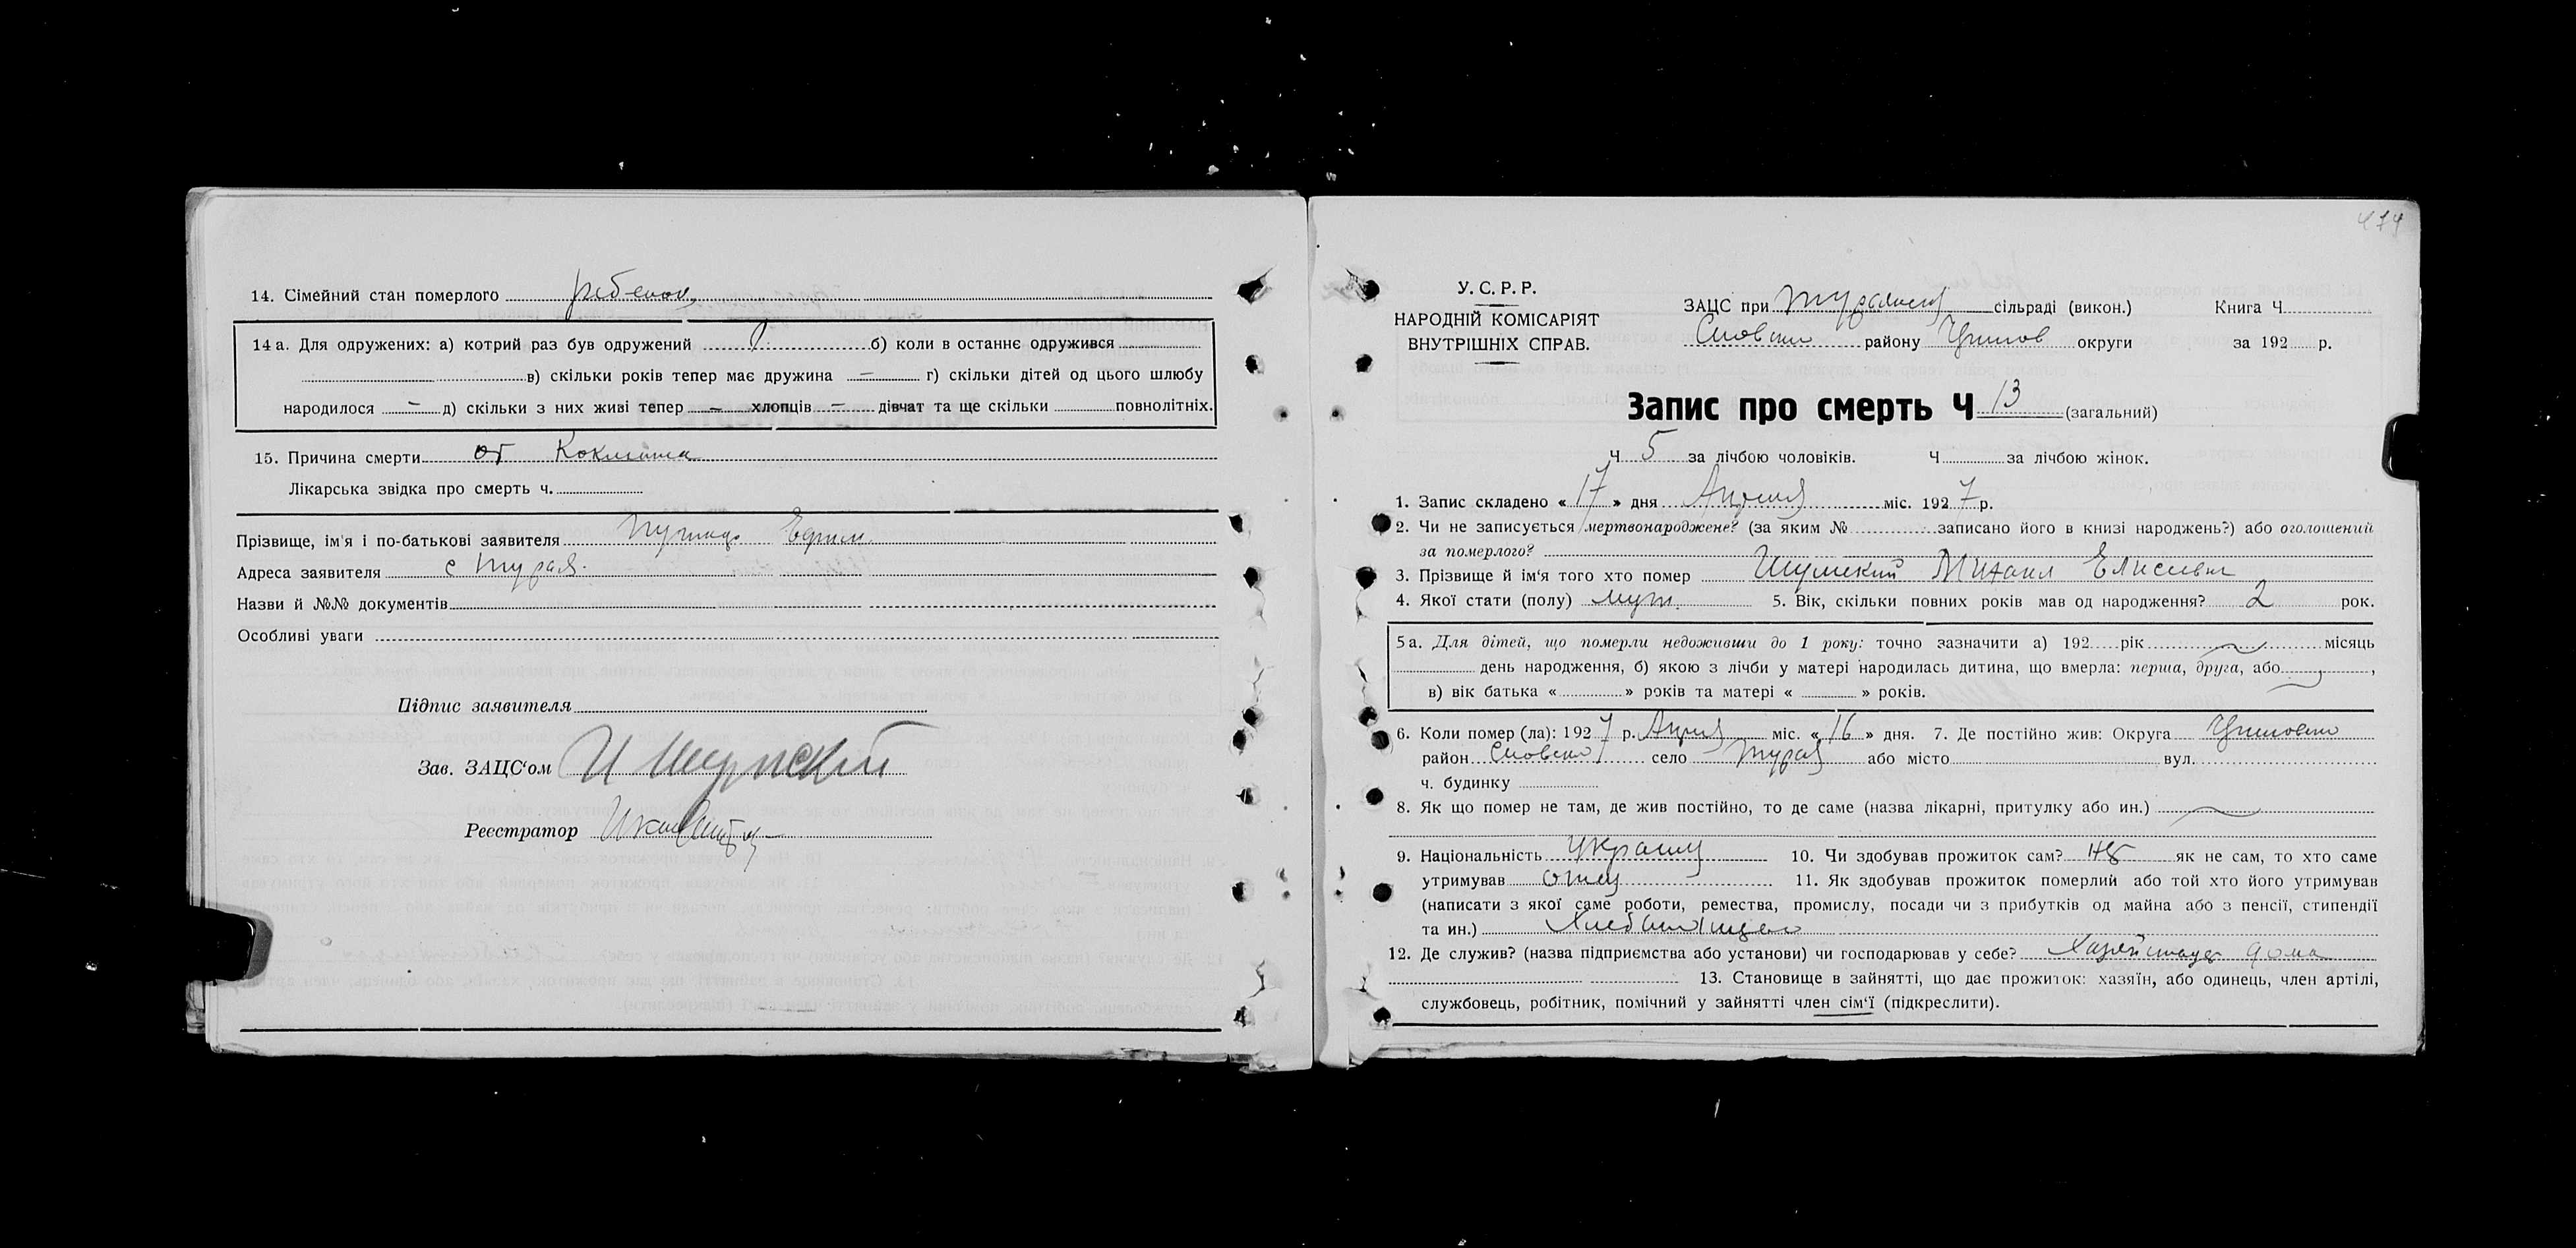 14. Сімейний стан померлого ребенок
14 а. Для одружених: а) котрий раз був одружений б) коли в останнє одружився
в) скільки років тепер має дружина — г) скільки дітей од цього шлюбу
народилося — д) скільки з них живі тепер — хлопців — дівчат та ще скільки повнолітніх.
15. Причина смерти от Коклюша
Лікарська звідка про смерть ч.
Прізвище, ім'я і по-батькові заявителя Ефим
Адреса заявителя с Турая
Назви й №№ документів
Особливі уваги
Підпис заявителя
Зав. ЗАЦС'ом И Шумский
Реєстратор
474
У. С. Р. Р.
НАРОДНІЙ КОМІСАРІЯТ
ВНУТРІШНІХ СПРАВ.
ЗАЦС при сільраді (викон.) Книга Ч
району округи за 192 р.
Запис про смерть Ч 13 (загальний)
Ч 5 за лічбою чоловіків. Ч за лічбою жінок.
1. Запис складено « 17 » дня Апреля міс. 1927 р.
2. Чи не записується мертвонароджене? (за яким № записано його в книзі народжень?) або оголошений
за померлого?
3. Прізвище й ім'я того хто помер Шумский Михаил Елисеевич
4. Якої стати (полу) муж. 5. Вік, скільки повних років мав од народження? 2 рок.
5 а. Для дітей, що померли недоживши до 1 року: точно зазначити а) 192 рік місяць
день народження, б) якою з лічби у матері народилась дитина, що вмерла: перша, друга, або ,
в) вік батька « » років та матері « » років.
6. Коли помер (ла): 1927 р. Апреля міс. « 16 » дня. 7. Де постійно жив: Округа
район село Турая або місто вул.
ч. будинку
8. Як що помер не там, де жив постійно, то де саме (назва лікарні, притулку або ин.)
9. Національність 10. Чи здобував прожиток сам? не як не сам, то хто саме
утримував отец 11. Як здобував прожиток померлий або той хто його утримував
(написати з якої саме роботи, ремества, промислу, посади чи з прибутків од майна або з пенсії, стипендії
та ин.)
12. Де служив? (назва підприємства або установи) чи господарював у себе? дома
13. Становище в зайнятті, що дає прожиток: хазяїн, або одинець, член артілі,
службовець, робітник, помічний у зайнятті член сім'ї (підкреслити).